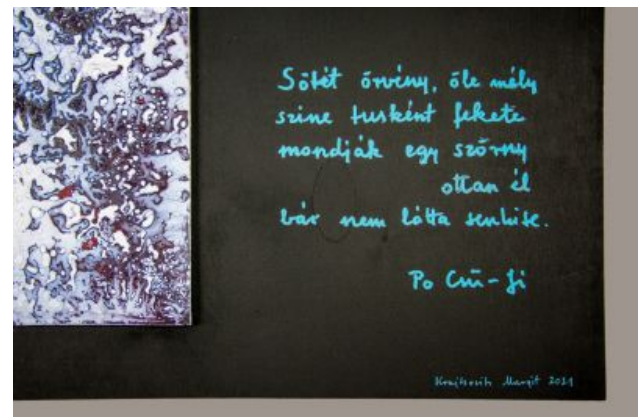 Sötét örvény, öle mély
szine tusként fekete
mondják egy szörny
ottan él
bár nem látta senkise.
Po Csü-Ji
Krajtsovits Margit 2021